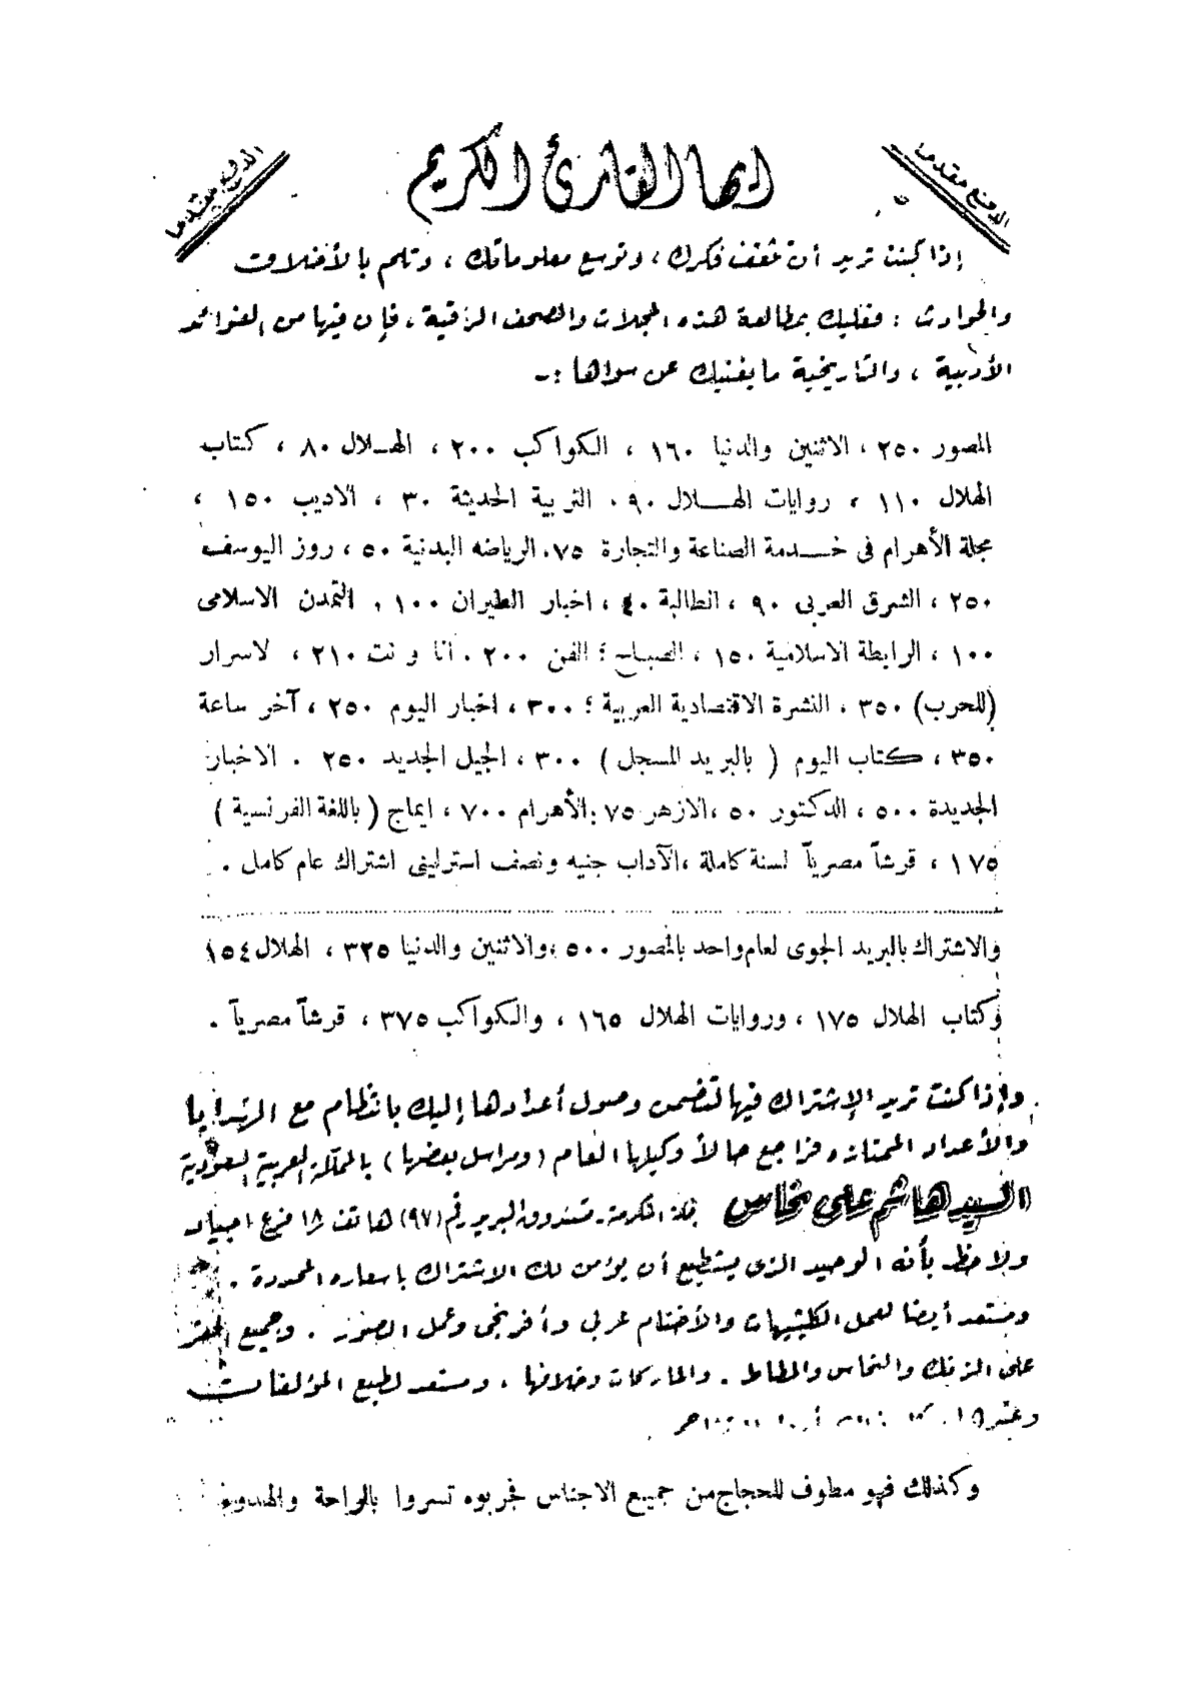 الدفع مقدما
ايها القارئ الكريم
الدفع مقدما
إذا كنت تريد أن تثقف فكرك ، وتوسع معلوماتك ، وتلم بالأخلاق
والحوادث : فعليك بمطالعة هذه المجلات والصحف الراقية ، فإن فيها من الفوائد
الأدبية ، والتاريخية ما يغنيك عن سواها :-
المصور ٢٥٠ ، الاثنين والدنيا ١٦٠ ، الكواكب ٢٠٠ ، الهلال ٨٠ ، كتاب
الهلال ١١٠ ، روايات الهلال ٩٠ . التربية الحديثة ٣٠ ، الاديب ١٥٠ ،
مجلة الأهرام فى خدمة الصناعة والتجارة ٧٥ ، الرياضه البدنية ٥٠ ، روز اليوسف
٢٥٠ ، الشرق العربى ٩٠ ، الطالبة ٤٠ ، اخبار الطيران ١٠٠ , التمدن الاسلامى
١٠٠ ، الرابطة الاسلامية ١٥٠ ، الصباح ؛ الفن ٢٠٠ . أنا و نت ٢١٠ ، لاسرار
(للحرب) ٣٥٠ ، النشرة الاقتصادية العربية ؛ ٣٠٠ ، اخبار اليوم ٢٥٠ ، آخر ساعة
٣٥٠ ، كتاب اليوم ( بالبريد المسجل ) ٣٠٠ ، الجيل الجديد ٢٥٠ . الاخبار
الجديدة ٥٠٠ ، الدكتور ٥٠ ، الازهر ٧٥ : الأهرام ٧٠٠ ، ايماج ( باللغة الفرنسية )
١٧٥ ، قرشاً مصرياً لسنة كاملة ، الآداب جنيه ونصف استرلينى اشتراك عام كامل .
والاشتراك بالبريد الجوى لعام واحد بالمصور ٥٠٠ ؛ والاثنين والدنيا ٣٢٥ ، الهلال ١٥٤
وكتاب الهلال ١٧٥ ، وروايات الهلال ١٦٥ ، والكواكب ٣٧٥ ، قرشاً مصرياً .
وإذا كنت تريد الإشتراك فيها لتضمن وصول أعدادها إليك بانتظام مع الهدايا
والأعداد الممتازه فراجع حالاً وكيلها العام (ومراسل بعضها) بالمملكة العربية السعودية
السيد هاشم على نحاس بمكة المكرمة - صندوق البريد رقم (٩٧) هاتف ١٨ فرع اجياد
ولاحظ بأنه الوحيد الذى يستطيع أن يؤمن لك الاشتراك باسعاره المحدودة .
ومستعد أيضا لعمل الكليشيهات والأختام عربى وأفرنجى وعمل الصور . وجميع الحفر
على الزنك والنحاس والمطاط . والماركات وخلافها ، ومستعد لطبع المؤلفات
وكذلك فهو مطوف للحجاج من جميع الاجناس فجربوه تسروا بالراحة والهدوء